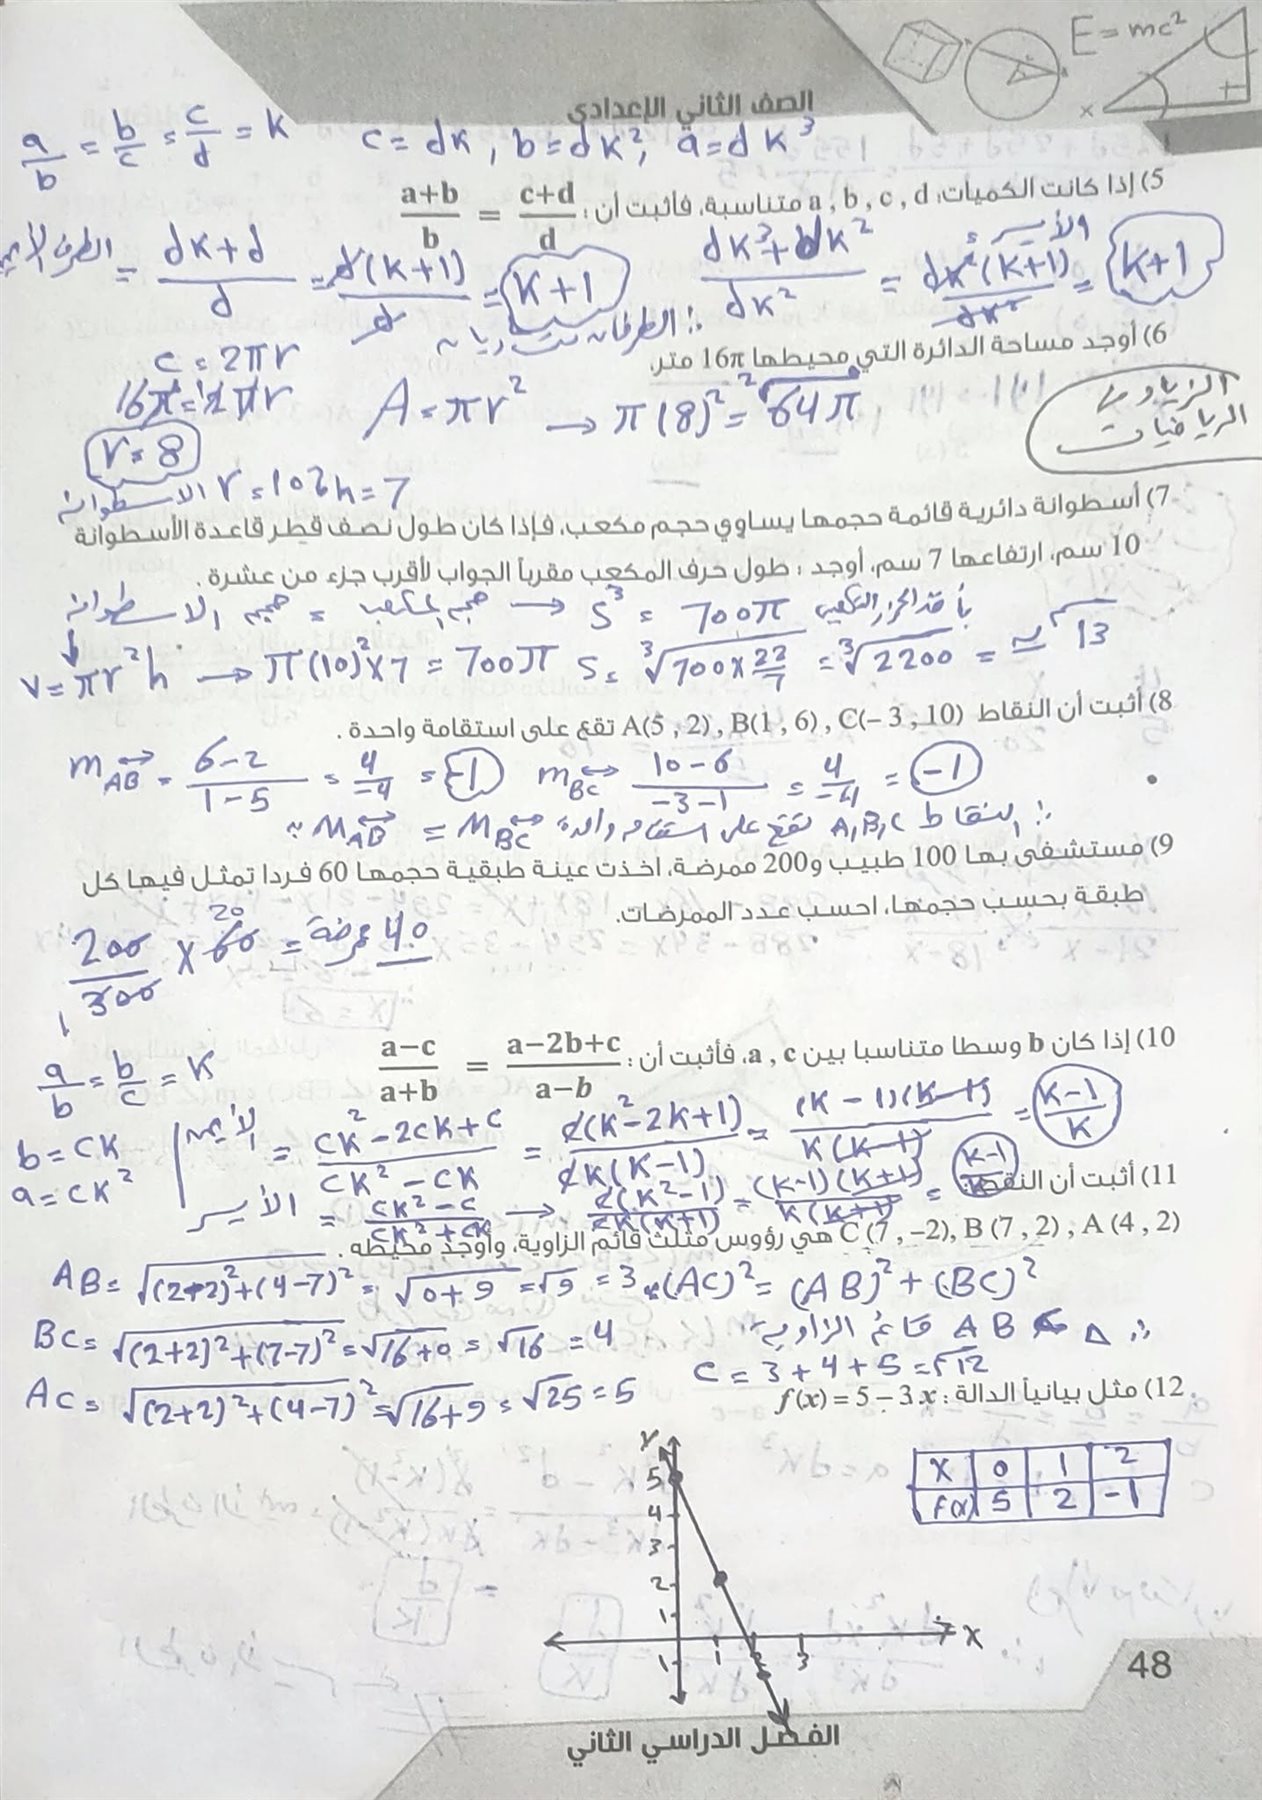 E = mc²
x
الصف الثاني الإعدادي
a/b = b/c = c/d = k    c = dk , b = dk² , a = dk³
5) إذا كانت الكميات: a , b , c , d متناسبة، فأثبت أن: (a+b)/b = (c+d)/d
= (dk+d)/d = d(k+1)/d = k+1
الأيسر
(dk³+dk²)/dk² = dk²(k+1)/dk² = k+1
∴ الطرفان متساويان
6) أوجد مساحة الدائرة التي محيطها 16π متر.
c = 2πr
16π = 2πr
r = 8
A = πr² → π(8)² = 64π
الرياضيات
الاسطوانة r = 10 h = 7
7) أسطوانة دائرية قائمة حجمها يساوي حجم مكعب، فإذا كان طول نصف قطر قاعدة الأسطوانة
10 سم، ارتفاعها 7 سم، أوجد : طول حرف المكعب مقرباً الجواب لأقرب جزء من عشرة .
حجم الاسطوانة = حجم المكعب → S³ = 700π
V = πr²h → π(10)² × 7 = 700π    S = ∛(700 × 22/7) = ∛2200 = ≃ 13
8) أثبت أن النقاط A(5 , 2) , B(1 , 6) , C(– 3 , 10) تقع على استقامة واحدة .
m AB = (6-2)/(1-5) = 4/-4 = -1    m BC (10-6)/(-3-1) = 4/-4 = -1
∵ m AB = m BC ∴ النقاط A,B,C تقع على استقامة واحدة
9) مستشفى بها 100 طبيب و200 ممرضة، اخذت عينة طبقية حجمها 60 فردا تمثل فيها كل
طبقة بحسب حجمها، احسب عدد الممرضات.
200/300 × 60 = 40 ممرضة
20
1
10) إذا كان b وسطا متناسبا بين a , c، فأثبت أن: (a–c)/(a+b) = (a–2b+c)/(a–b)
a/b = b/c = k
b = ck
a = ck²
الأيمن = (ck²-2ck+c)/(ck²-ck) = c(k²-2k+1)/ck(k-1) = (k-1)(k-1)/k(k-1) = (k-1)/k
الأيسر = (ck²-c)/(ck²+ck) → c(k²-1)/ck(k+1) = (k-1)(k+1)/k(k+1) = (k-1)/k
11) أثبت أن النقط:
C (7 , –2), B (7 , 2) , A (4 , 2) هي رؤوس مثلث قائم الزاوية، وأوجد محيطه .
AB = √((2-2)²+(4-7)²) = √(0+9) = √9 = 3    (AC)² = (AB)² + (BC)²
BC = √((2+2)²+(7-7)²) = √(16+0) = √16 = 4
∴ Δ ABC قائم الزاوية
C = 3+4+5 = 12
AC = √((2+2)²+(4-7)²) = √(16+9) = √25 = 5
12) مثل بيانياً الدالة : f(x) = 5 – 3 x
x 0 1 2
F(x) 5 2 -1
y
5
4
3
2
1
1 2 3 x
1
48
الفصل الدراسي الثاني